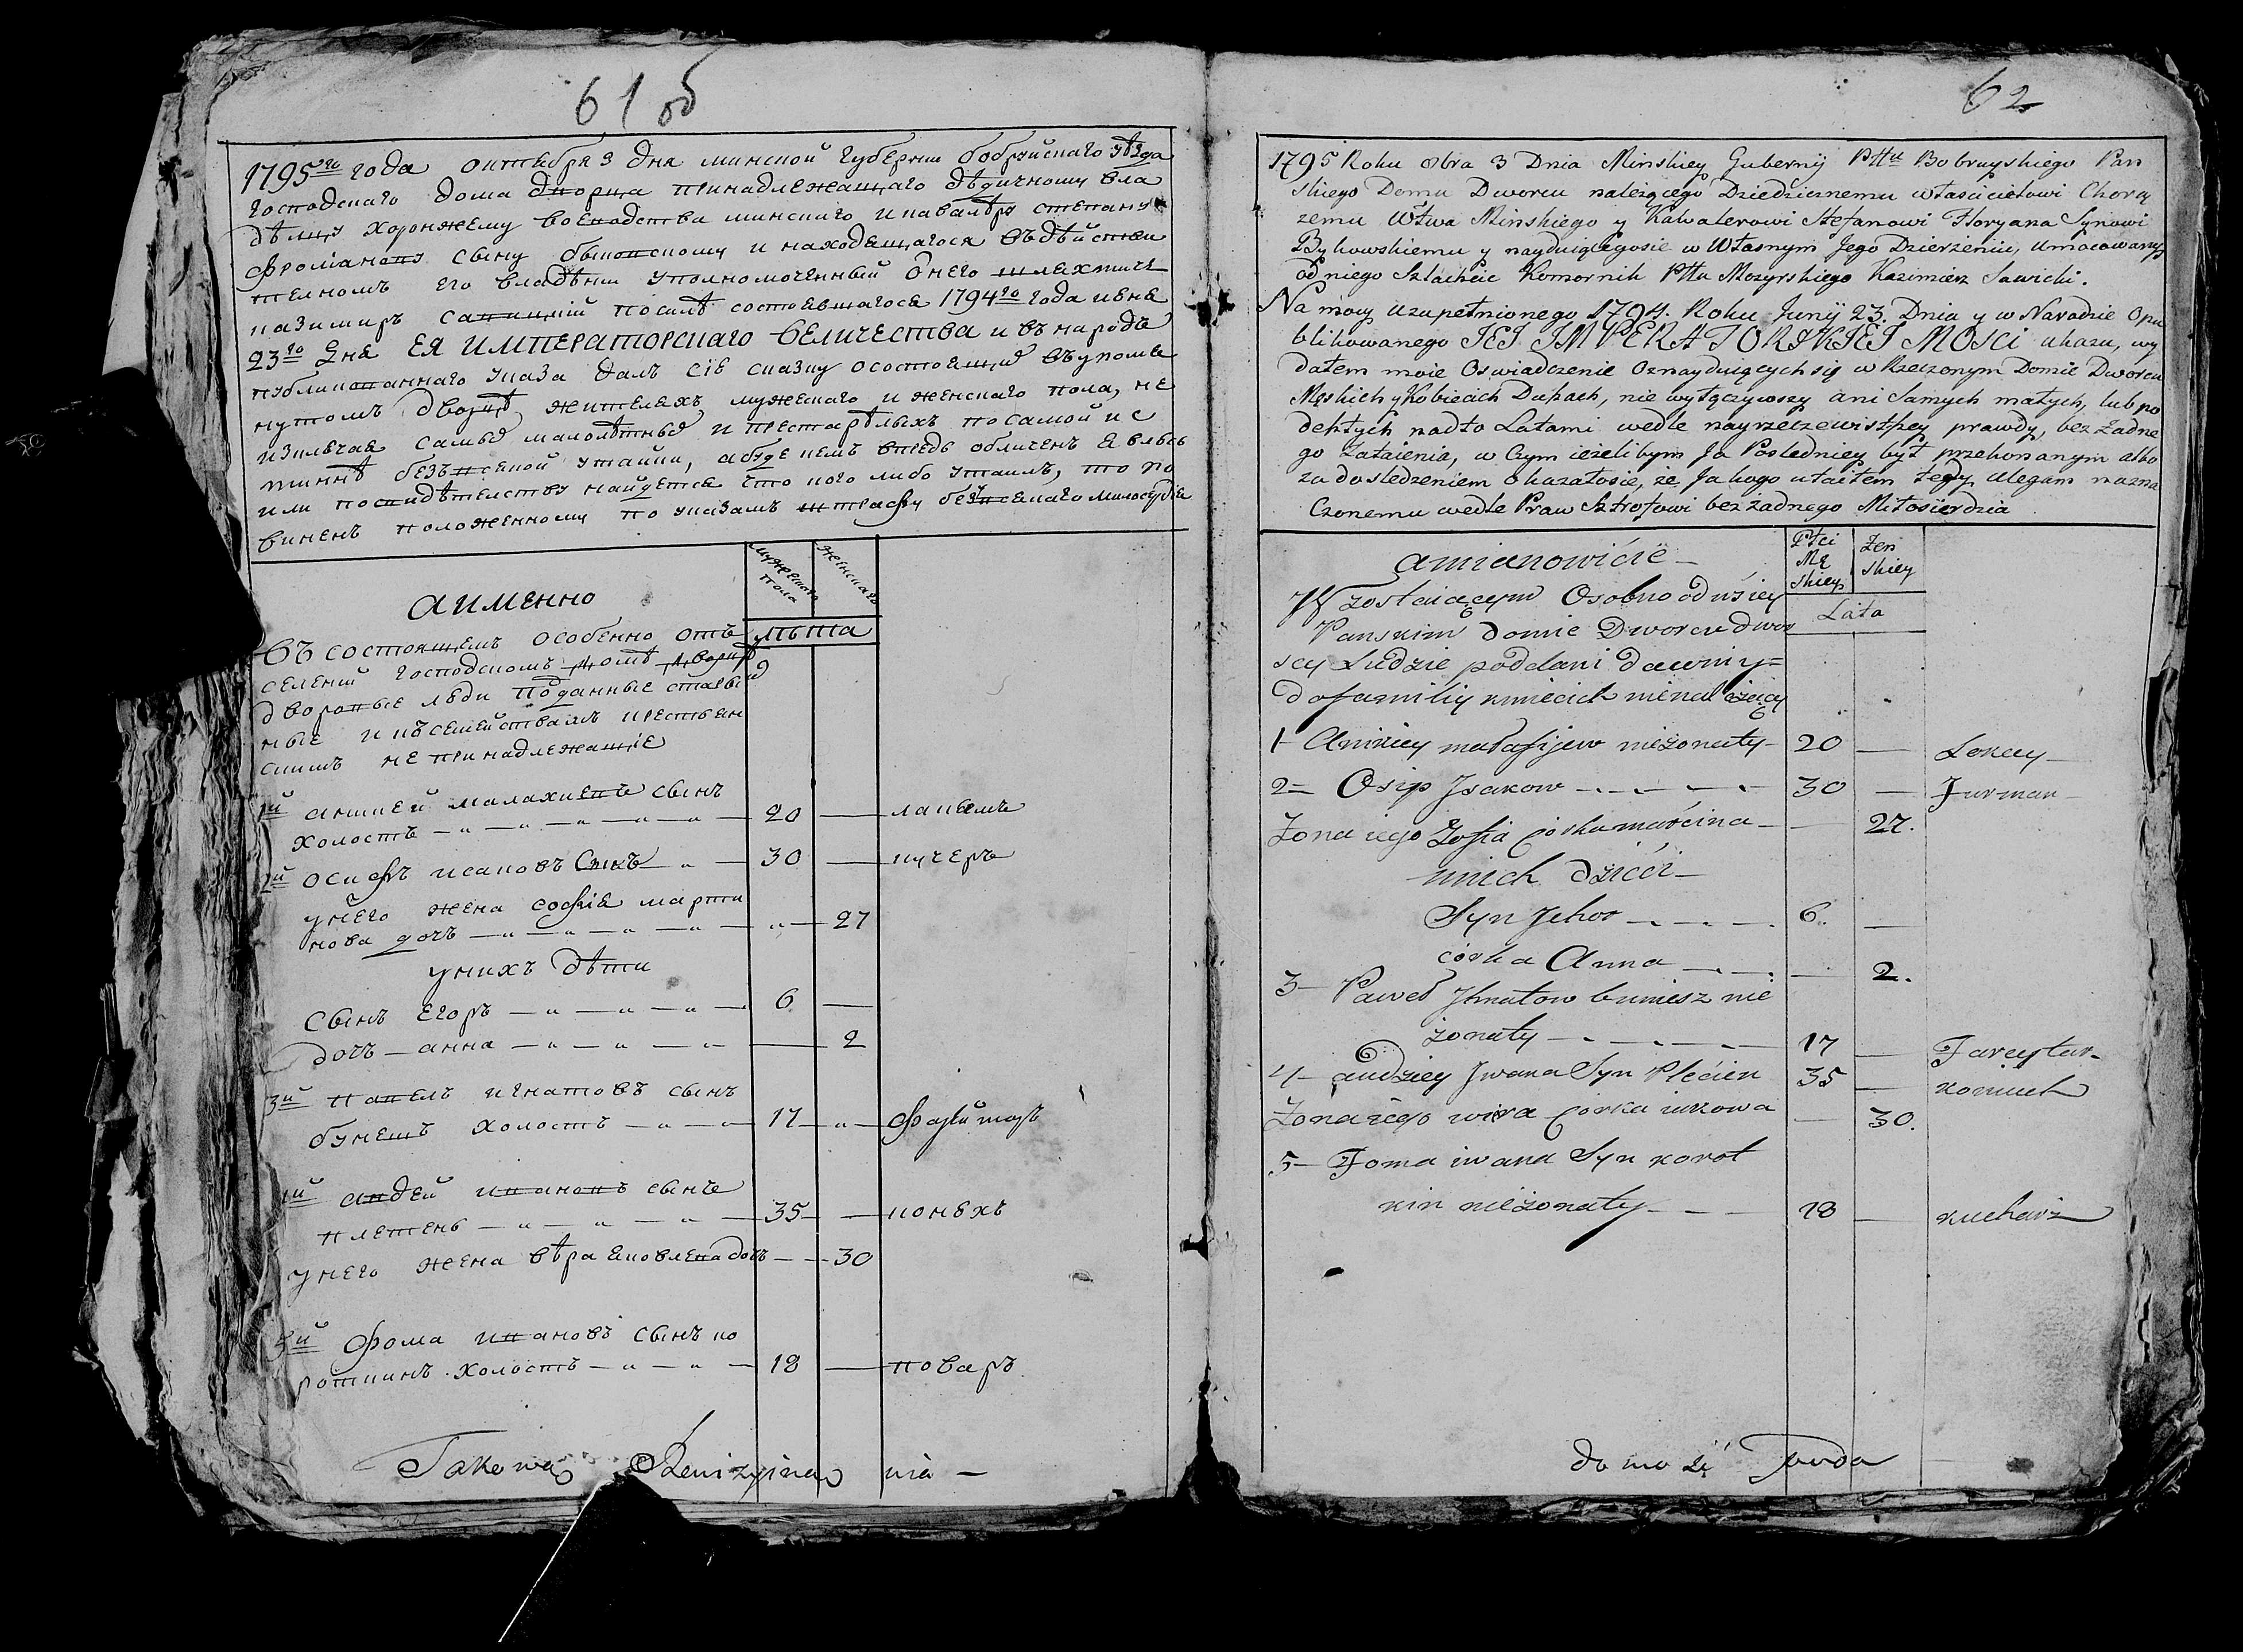 61 об
1795го года октября 3 дня минской губернии бобруйскаго уѣзда
господскаго дома дворца принадлежащаго дѣдичному вла
дѣлцу хоронжему воеводства минскаго и кавалѣру степану
фрорiанову сыну быковскому и находящагося въ дѣйстви
телномъ его владѣнии уполномоченный онего шляхтичь
казимиръ савицкiй посилѣ состоявшагося 1794го года июня
23го дня ЕЯ ИМПЕРАТОРСКАГО ВЕЛИЧЕСТВА и въ народъ
публикованнаго указа далъ сiе сказку осостоящие въ упомя
нутомъ дворцѣ жителяхъ мужескаго и женскаго пола, не
изключая самые малолѣтные и престарѣлыхъ по самой ис
тиннѣ безъ всякой утайки, абуде кемъ впедь обличенъ я влюсь
или посвидѣтелству найдется что кого либо утаилъ, то по
виненъ положенному по указамъ штрафу безъ всякаго милосердiя
аименно
мужескаго пола
женскаго
лѣта
въ состоящемъ особенно отъ
селенiй господскомъ домѣ дворцѣ
дворовые люди поданные старын
ные и къ семействамъ крестьян
скимъ не принадлежащiе
1й аникей малахиевъ сынъ
холостъ 20 лакѣмъ
2й осифъ исаковъ сынъ 30 кучеръ
унего жена софiя марти
нова дочъ 27
унихъ дѣти
сынъ егоръ 6
дочъ анна 2
3й павелъ игнатовъ сынъ
бунешъ холостъ 17 форейторъ
4й андей ивановъ сынъ
плетень 35 конюхъ
унего жена вѣра яковлева дочъ 30
5й фома ивановъ сынъ ко
роткинъ холостъ 18 поваръ
Takową Rewizyiną
62
1795 Roku 8bra 3 Dnia Minskiey Gubernij Pttu Bobruyskiego Pan
skiego Domu Dworcu należącego Dziedzicznemu właścicielowi Chorą
żemu Wtwa Minskiego y Kawalerowi Stefanowi Floryana Synowi
Bykowskiemu y nayduiącegosie w Własnym Jego Dzierżeniu, umocowany
od niego Szlachcic Komornik Pttu Mozyrskiego Kazimierz Sawicki.
Na mocy uzupełnionego 1794. Roku Junij 23. Dnia y w Narodzie Opu
blikowanego JEJ IMPERATORSKIEJ MOSCI ukazu, wy
dałem moie Oswiadczenie Oznayduiących się w Rzeczonym Domie Dworcu
Męskich y Kobiecich Duhach, nie wyłączywszy ani Samych małych, lub po
deszłych nadto Latami wedle nayrzeczewistszey prawdy, bez żadne
go Zataienia, w Czym ieżelibym Ja Posledniey był przekonanym albo
za dosledzeniem okazałosie, że Ja kogo utaiłem tedy ulegam nazna
Czonemu wedle Praw Sztrofowi bez żadnego Miłosierdzia
amianowićie
Płci Mę skiey
Żen skiey
Lata
W zostaiącym Osobno od wśiey
Panskim Domie Dworcu dwor
scy Ludzie poddani dawni y
do familiy kmiecich nienależący
1 Anikiey małafijew nieżonaty 20 Lokay
2 Osip Jsakow 30 Furman
Żona iego Zofia Corka marcina 27.
unich dzieći
Syn Jehor 6
córka Anna 2.
3 Paweł Jhnatow buniesz nie
żonaty 17 Fareytar
4 andziey Jwana Syn Plećień 35 koniuch
Żona iego wiera Corka iakowa 30.
5 Foma iwana Syn korot
kin nieżonaty 18 kucharz